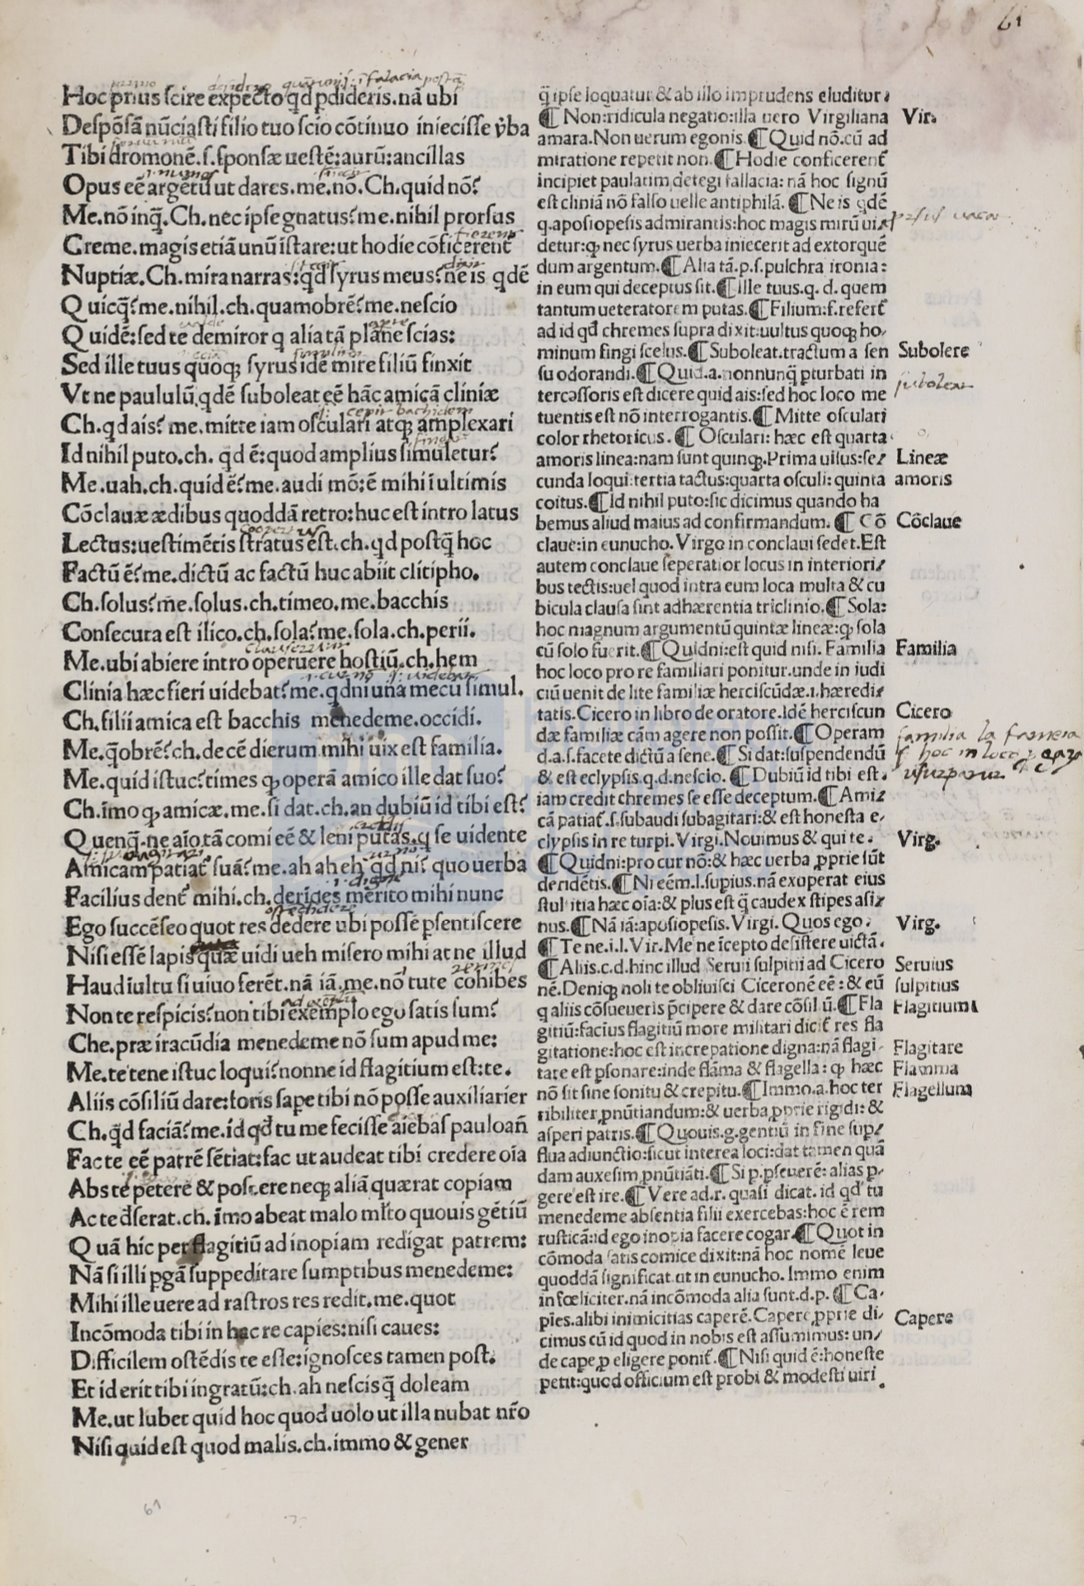 61
Hoc prius scire expecto qd pdideris.nā ubi
Despōsā nūciasti filio tuo scio cōtinuo iniecisse ỷba
Tibi dromonē.s.sponsæ uestē:aurū:ancillas
Opus eē argētū ut dares.me.nō.Ch.quid nō?
Me.nō inq̄.Ch.nec ipse gnatus?me.nihil prorsus
Creme.magis etiā unū istare:ut hodie cōficerent̄
Nuptiæ.Ch.mira narras:qd syrus meus?ne is qdē
Quicq̄?me.nihil.ch.quamobrē?me.nescio
Quidē:sed te demiror q alia tā plane scias:
Sed ille tuus quoqꝫ syrus idē mire filiū finxit
Vt ne paululū,qdē suboleat eē hāc amicā cliniæ
Ch.qd ais? me.mitte iam osculari atqꝫ amplexari
Id nihil puto.ch. qd ē:quod amplius simuletur?
Me.uah.ch.quid ē?me.audi mō:ē mihi ī ultimis
Cōclauæ ædibus quoddā retro:huc est intro latus
Lectus:uestimētis stratus est.ch.qd postq̄ hoc
Factū ē?me.dictū ac factū huc abiit clitipho.
Ch.solus?me.solus.ch.timeo.me.bacchis
Consecuta est ilico.ch.sola?me.sola.ch.perii.
Me.ubi abiere intro operuere hostiū.ch.hem
Clinia hæc fieri uidebat?me.qdni una mecū simul.
Ch.filii amica est bacchis menedeme.occidi.
Me.q̄obrē?ch.decē dierum mihi uix est familia.
Me.quid istuc?times qꝫ operā amico ille dat suo?
Ch.īmo qꝫ amicæ.me.si dat.ch.an dubiū id tibi est?
Quenq̄.ne aio tā comi eē & leni putas.q se uidente
Amicam patiat̄ suā?me.ah ah eh qd ni? quo uerba
Facilius dent̄ mihi.ch.derides merito mihi nunc
Ego succēseo quot res dedere ubi possē psentiscere
Nisi essē lapis quæ uidi ueh misero mihi at ne illud
Haud īultū si uiuo ferēt.nā iā.me.nō tute cohibes
Non te respicis?non tibi exemplo ego satis sum?
Che.præ iracūdia menedeme nō sum apud me:
Me.te tene istuc loqui?nonne id flagitium est:te.
Aliis cōsiliū dare:foris sape tibi nō posse auxiliarier
Ch.qd faciā?me.id qd tu me fecisse aiebas pauloan̄
Fac te eē patrē sētiat:fac ut audeat tibi credere oīa
Abs te petere & poscere neqꝫ aliā quærat copiam
Ac te dserat.ch.īmo abeat malo mlto quouis gētiū
Quā hic per flagitiū ad inopiam redigat patrem:
Nā si illi pgā suppeditare sumptibus menedeme:
Mihi ille uere ad rastros res redit.me.quot
Incōmoda tibi in hac re capies:nisi caues:
Difficilem ostēdis te esse:ignosces tamen post.
Et id erit tibi ingratū:ch.ah nescis q̄ doleam
Me.ut lubet quid hoc quod uolo ut illa nubat nr̄o
Nisi quid est quod malis.ch.immo & gener
q̄ ipse loquatur & ab illo imprudens eluditur.
¶ Non:ridicula negatio:illa uero Virgiliana
amara.Non uerum egonis.¶ Quid nō.cū ad
miratione repetit non.¶ Hodie conficerent̄
incipiet paulatim detegi fallacia: nā hoc signū
est cliniā nō falso uelle antiphilā.¶ Ne is qdē
q.aposiopesis admirantis:hoc magis mirū ui⸗
detur:qꝫ nec syrus uerba iniecerit ad extorquē
dum argentum.¶ Alia tā.p.s.pulchra ironia:
in eum qui deceptus sit.¶ Ille tuus.q.d.quem
tantum ueteratorem putas.¶ Filium:s.refert̄
ad id qd chremes supra dixit:uultus quoqꝫ ho⸗
minum fingi scelus.¶ Suboleat.tractum a sen
su odorandi.¶ Quid.a.nonnunq̄ pturbati in
tercessoris est dicere quid ais:sed hoc loco me
tuentis est nō interrogantis.¶ Mitte osculari
color rhetoricus.¶ Osculari: hæc est quarta
amoris linea:nam sunt quinqꝫ.Prima uisus:se⸗
cunda loqui:tertia tactus:quarta osculi: quinta
coitus.¶ Id nihil puto:sic dicimus quando ha
bemus aliud maius ad confirmandum.¶ Cō
claue:in eunucho.Virgo in conclaui sedet.Est
autem conclaue seperatior locus in interiori⸗
bus tectis:uel quod intra eum loca multa & cu
bicula clausa sint adhærentia triclinio.¶ Sola:
hoc magnum argumentū quintæ lineæ:qꝫ sola
cū solo fuerit.¶ Quidni:est quid nisi. Familia
hoc loco pro re familiari ponitur.unde in iudi
ciū uenit de lite familiæ herciscūdæ.i.hæredi⸗
tatis.Cicero in libro de oratore.Idē herciscun
dæ familiæ cām agere non possit.¶ Operam
d.a.s.facete dictū a sene.¶ Si dat:suspendendū
& est eclypsis.q.d.nescio.¶ Dubiū id tibi est.
iam credit chremes se esse deceptum.¶ Ami⸗
cā patiat̄.s.subaudi subagitari:& est honesta e⸗
clypsis in re turpi.Virgi.Nouimus & qui te.
¶ Quidni:pro cur nō:& hæc uerba pprie sūt
deridētis.¶ Ni eēm.l.supius.nā exuperat eius
stultitia hæc oīa:& plus est q̄ caudex stipes asi⸗
nus.¶ Nā iā:aposiopesis.Virgi.Quos ego.
¶ Te ne.i.l.Vir.Me ne īcepto desistere uictā.
¶ Aliis.c.d.hinc illud Seruii sulpitii ad Cicero
nē.Deniqꝫ noli te obliuisci Ciceronē eē:& eū
q aliis cōsueueris pcipere & dare cōsilū.¶ Fla
gitiū:facius flagitiū more militari dicit̄ res fla
gitatione:hoc est increpatione digna:nā flagi⸗
tare est psonare:inde flāma & flagella: qꝫ hæc
nō sit sine sonitu & crepitu.¶ Immo.a.hoc ter
ribiliter pnūtiandum:& uerba pprie rigidi: &
asperi patris.¶ Quouis.g.gentiū in fine sup⸗
flua adiunctio:sicut interea loci:dat tamen quā
dam auxesim pnūtiāti.¶ Si p.pseuerē: alias p⸗
gere est ire.¶ Vere ad.r.quasi dicat.id qd tu
menedeme absentia filii exercebas:hoc ē rem
rusticā:id ego inopia facere cogar.¶ Quot in
cōmoda satis comice dixit:nā hoc nomē leue
quoddā significat.ut in eunucho.Immo enim
infœliciter.nā incōmoda alia sunt.d.p.¶ Ca⸗
pies.alibi inimicitias caperē.Capere pprie di⸗
cimus cū id quod in nobis est assumimus: un⸗
de cape p eligere ponit̄.¶ Nisi quid ē:honeste
petit:quod officium est probi & modesti uiri.
Vir.
Subolere
suboleat
Lineæ
amoris
Cōclaue
Familia
Cicero
familia la fameia
hoc in loco
usurpatur
Virg.
Virg.
Seruius
sulpitius
Flagitium
Flagitare
Flamma
Flagellum
Capere
61